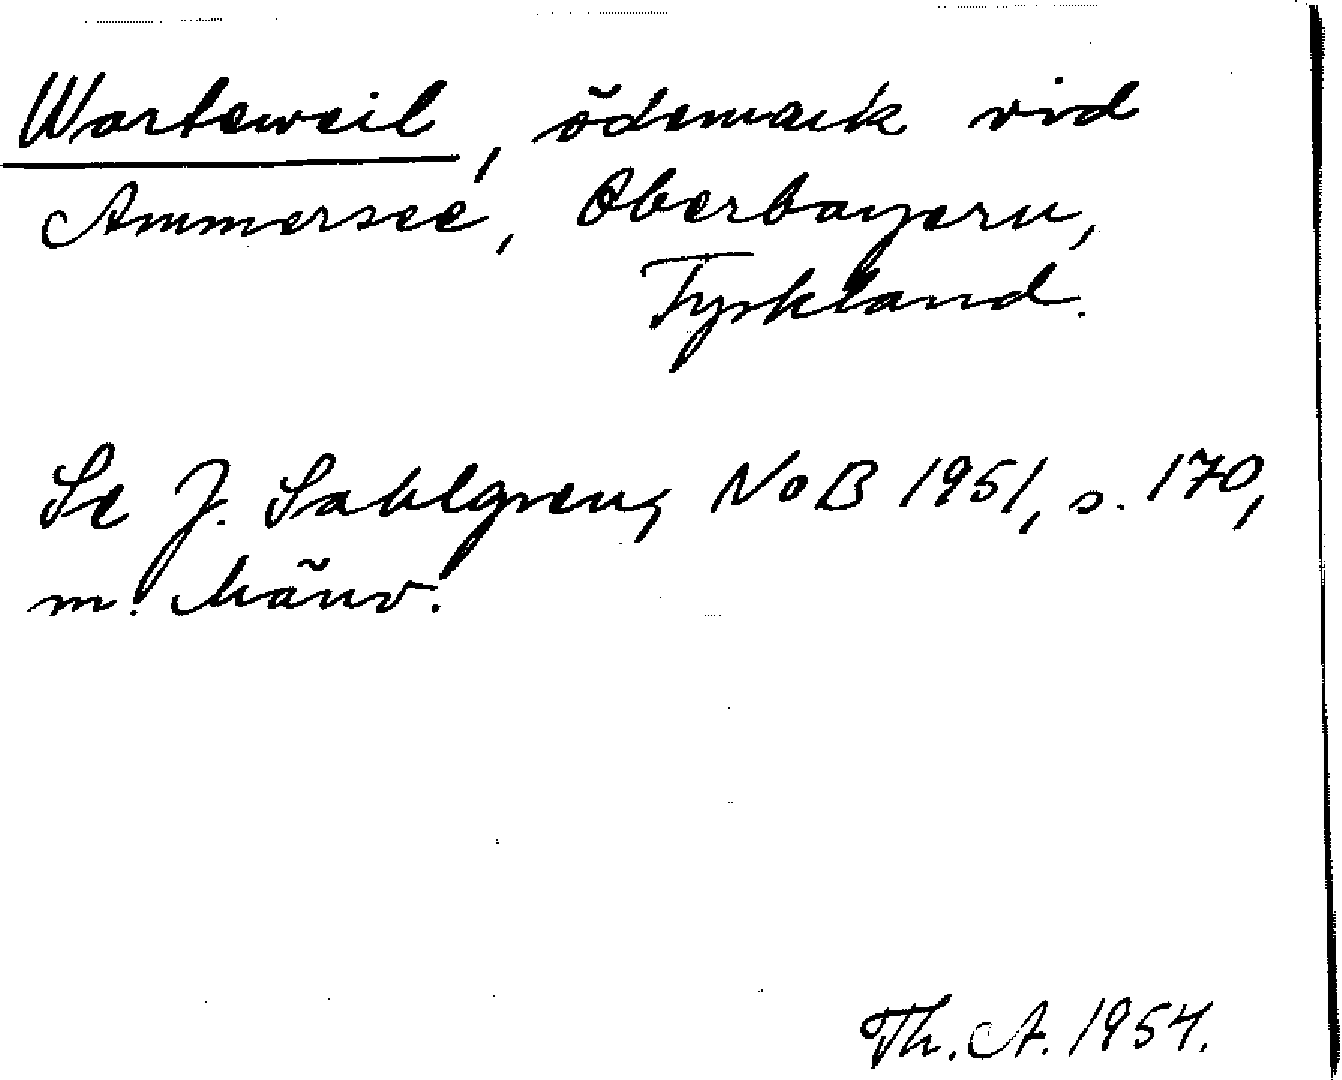 Warteweil, ödemark vid
Ammersee, Oberbayern,
Tyskland.
Se J. Sahlgren, NoB 1951, s. 170,
m. hänv.
Th. A. 1954.